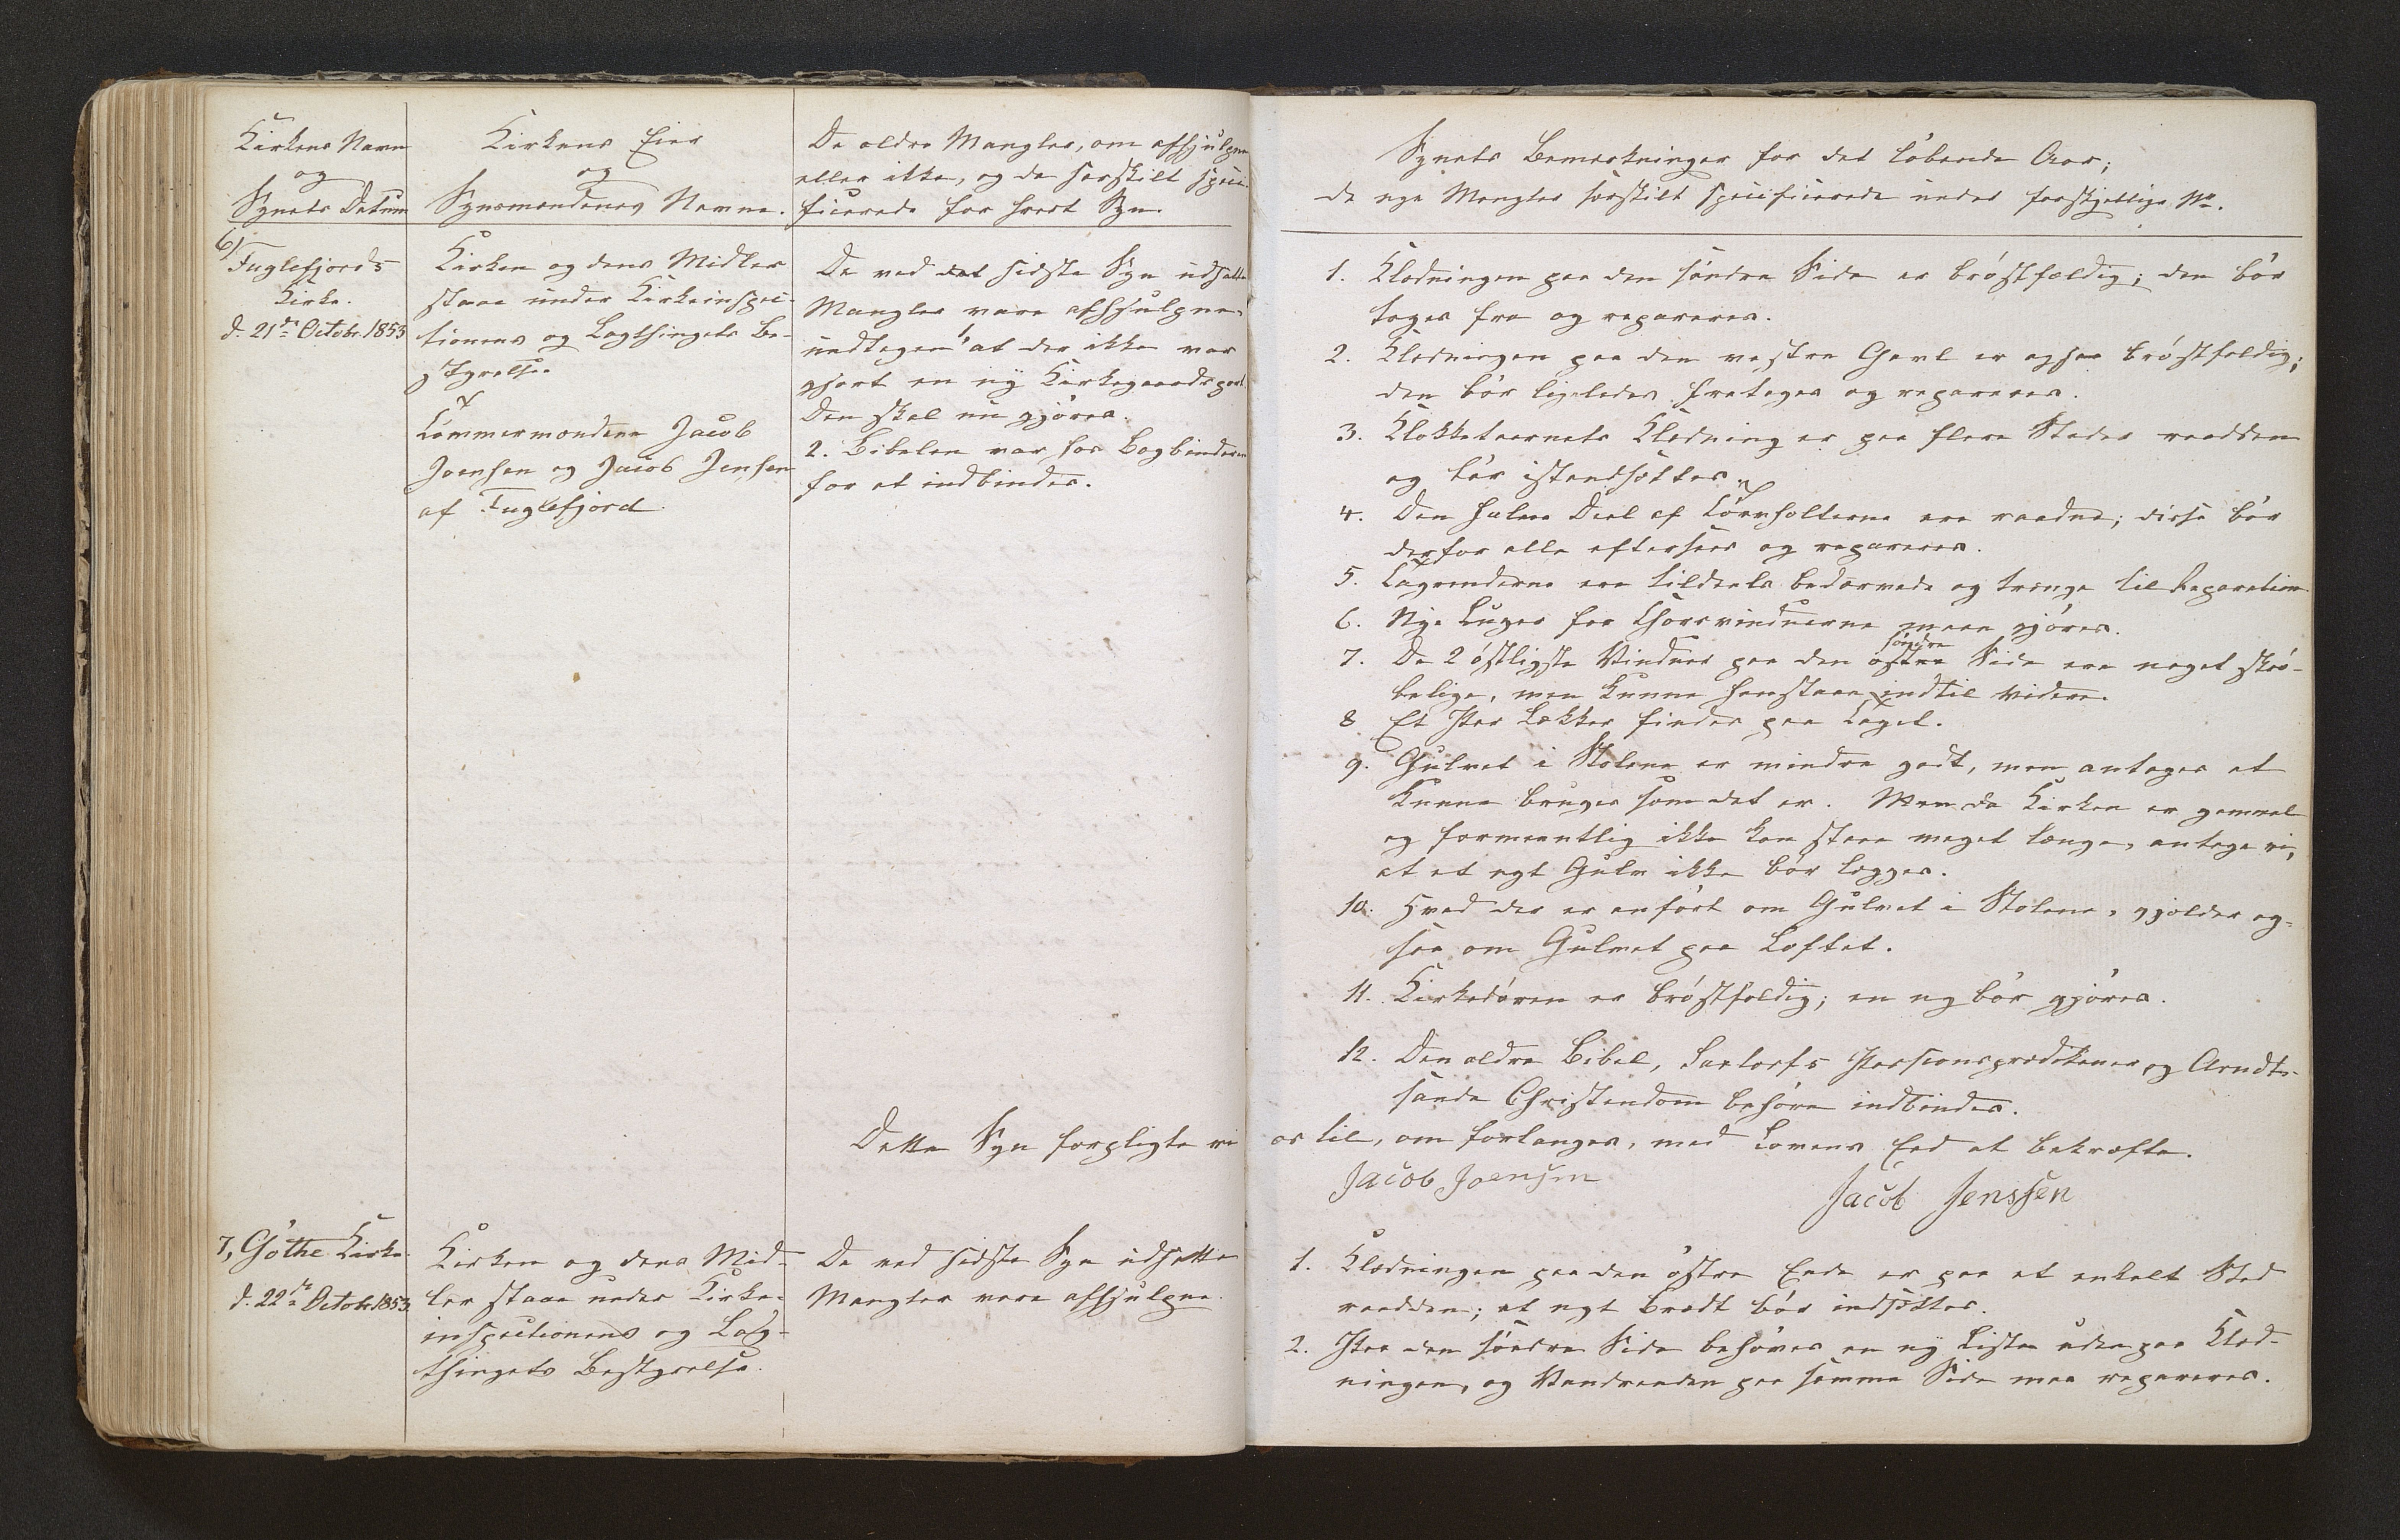 Kirkens Navn
og
Synets Datum
Kirkens Eier
og
Synsmændenes Navne.
De ældre Mangler, om afhjulpne
eller ikke, og da særskilt speci-
ficerede for hvert Syn.
6)
Fuglefjords
Kirke.
d. 21de Octobr. 1853
Kirken og dens Midler
staae under Kirkeinspec-
tionens og Lagthingets Be-
styrelse.
Tømmermændene Jacob
Joensen og Jacob Jensen
af Fuglefjord.
De ved det sidste Syn udsatte
Mangler vare afhjulpne,
undtagen 1, at der ikke var
gjort en ny Kirkegaardsport
Den skal nu gjøres.
2. Bibelen var hos Bogbinderen
for at indbindes.
Dette Syn forpligte vi
7, Gøthe Kirke.
d. 22de Octobr. 1853.
Kirken og dens Mid-
ler staae under Kirke-
inspectionens og Lag-
thingets Bestyrelse.
De ved sidste Syn udsatte
Mangler vare afhjulpne.
Synets Bemærkninger for det løbende Aar;
de nye Mangler særskilt specificerede under forskjellige No.
1. Klædningen paa den søndre Side er brøstfældig; den bør
tages fra og repareres.
2. Klædningen paa den vestre Gavl er ogsaa brøstfældig;
den bør ligeledes fratages og repareres.
3. Klokketaarnets Klædning er paa flere Steder raadden
og bør istandsættes.
4. Den halve Deel af Tørvholterne ere raadne; disse bør
derfor alle eftersees og repareres.
5. Tagrenderne ere tildeels bedærvede og trænge til Reparation
6. Nye Luger for Chorvinduerne maae gjøres.
søndre
7. De 2 østligste Vinduer paa den østre Side ere noget skrø-
belige, men kunne henstaae indtil videre.
8 Et Par Lækker findes paa Taget.
9. Gulvet i Stolene er mindre godt, men antages at
kunne bruges som det er. Men da Kirken er gammel
og formeentlig ikke kan staae meget længe, antage vi,
at et nyt Gulv ikke bør lægges.
10. Hvad der er anført om Gulvet i Stolene, gjælder og-
saa om Gulvet paa Loftet.
11. Kirkedøren er brøstfældig; en ny bør gjøres.
12. Den ældre Bibel, Saxtorfs Passionsprædikener og Arndts
sande Christendom behøve indbindes.
os til, om forlanges, med Lovens Eed at bekræfte.
Jacob Joensen
Jacob Jenssen
1. Klædningen paa den østre Ende er paa et enkelt Sted
raadden; et nyt Brædt bør indsættes.
2. Paa den søndre Side behøves en ny Liste udenpaa Klæd-
ningen, og Vandreenden paa samme Side maa repareres.